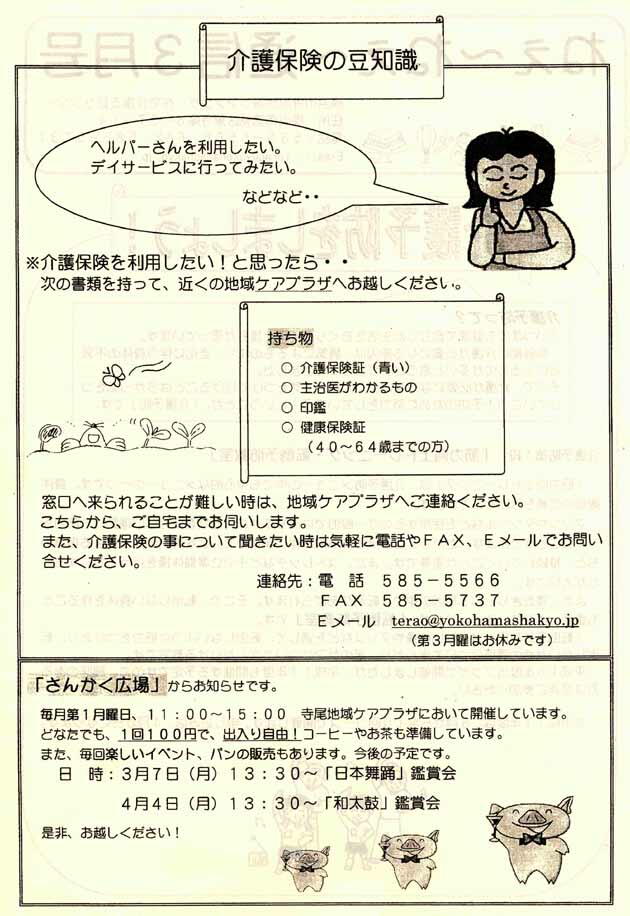 介護保険の豆知識
ヘルパーさんを利用したい。
デイサービスに行ってみたい。
などなど・・
※介護保険を利用したい！と思ったら・・
次の書類を持って、近くの地域ケアプラザへお越しください。
持ち物
○ 介護保険証（青い）
○ 主治医がわかるもの
○ 印鑑
○ 健康保険証
（４０～６４歳までの方）
窓口へ来られることが難しい時は、地域ケアプラザへご連絡ください。
こちらから、ご自宅までお伺いします。
また、介護保険の事について聞きたい時は気軽に電話やＦＡＸ、Ｅメールでお問い
合せください。
連絡先：電　話　５８５－５５６６
ＦＡＸ　５８５－５７３７
Ｅメール　terao@yokohamashakyo.jp
（第３月曜はお休みです）
「さんかく広場」からお知らせです。
毎月第１月曜日、１１：００～１５：００　寺尾地域ケアプラザにおいて開催しています。
どなたでも、１回１００円で、出入り自由！コーヒーやお茶も準備しています。
また、毎回楽しいイベント、パンの販売もあります。今後の予定です。
日　時：３月７日（月）１３：３０～「日本舞踊」鑑賞会
４月４日（月）１３：３０～「和太鼓」鑑賞会
是非、お越しください！